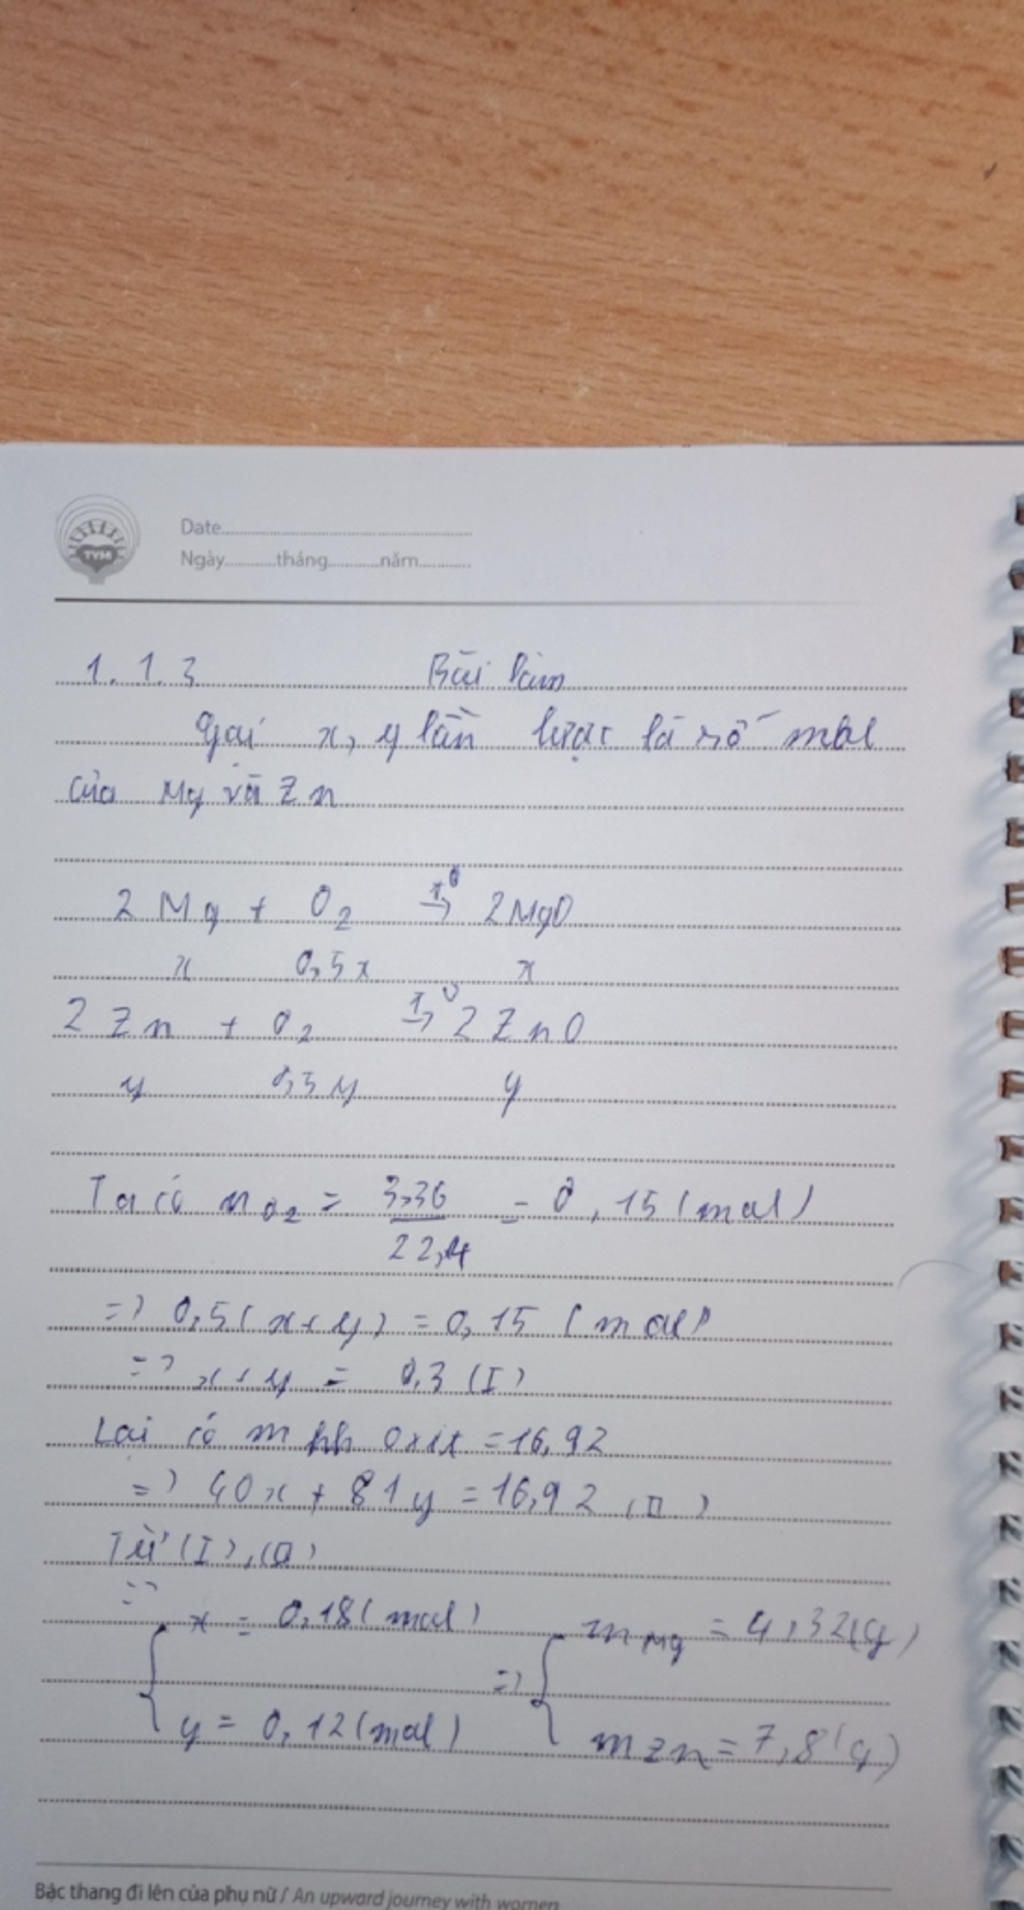 TYM
Date
Ngày tháng năm
1.1.3 Bài làm
Gọi x, y lần lượt là số mol
của Mg và Zn
2Mg + O2 t° → 2MgO
x 0,5x x
2Zn + O2 t° → 2ZnO
y 0,5y y
Ta có nO2 = 3,36 / 22,4 = 0,15 (mol)
=> 0,5(x+y) = 0,15 (mol)
=> x+y = 0,3 (I)
Lại có m hh oxit = 16,92
=> 40x + 81y = 16,92 (II)
Từ (I), (II)
=> { x = 0,18 (mol) => { mMg = 4,32 (g)
y = 0,12 (mol) mZn = 7,8 (g)
Bậc thang đi lên của phụ nữ / An upward journey with women